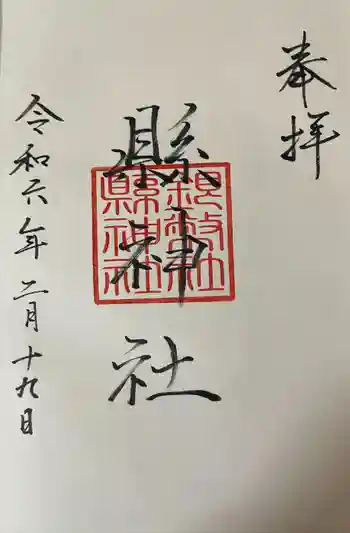 奉拝
縣神社
親敬社
縣神社
令和六年二月十九日